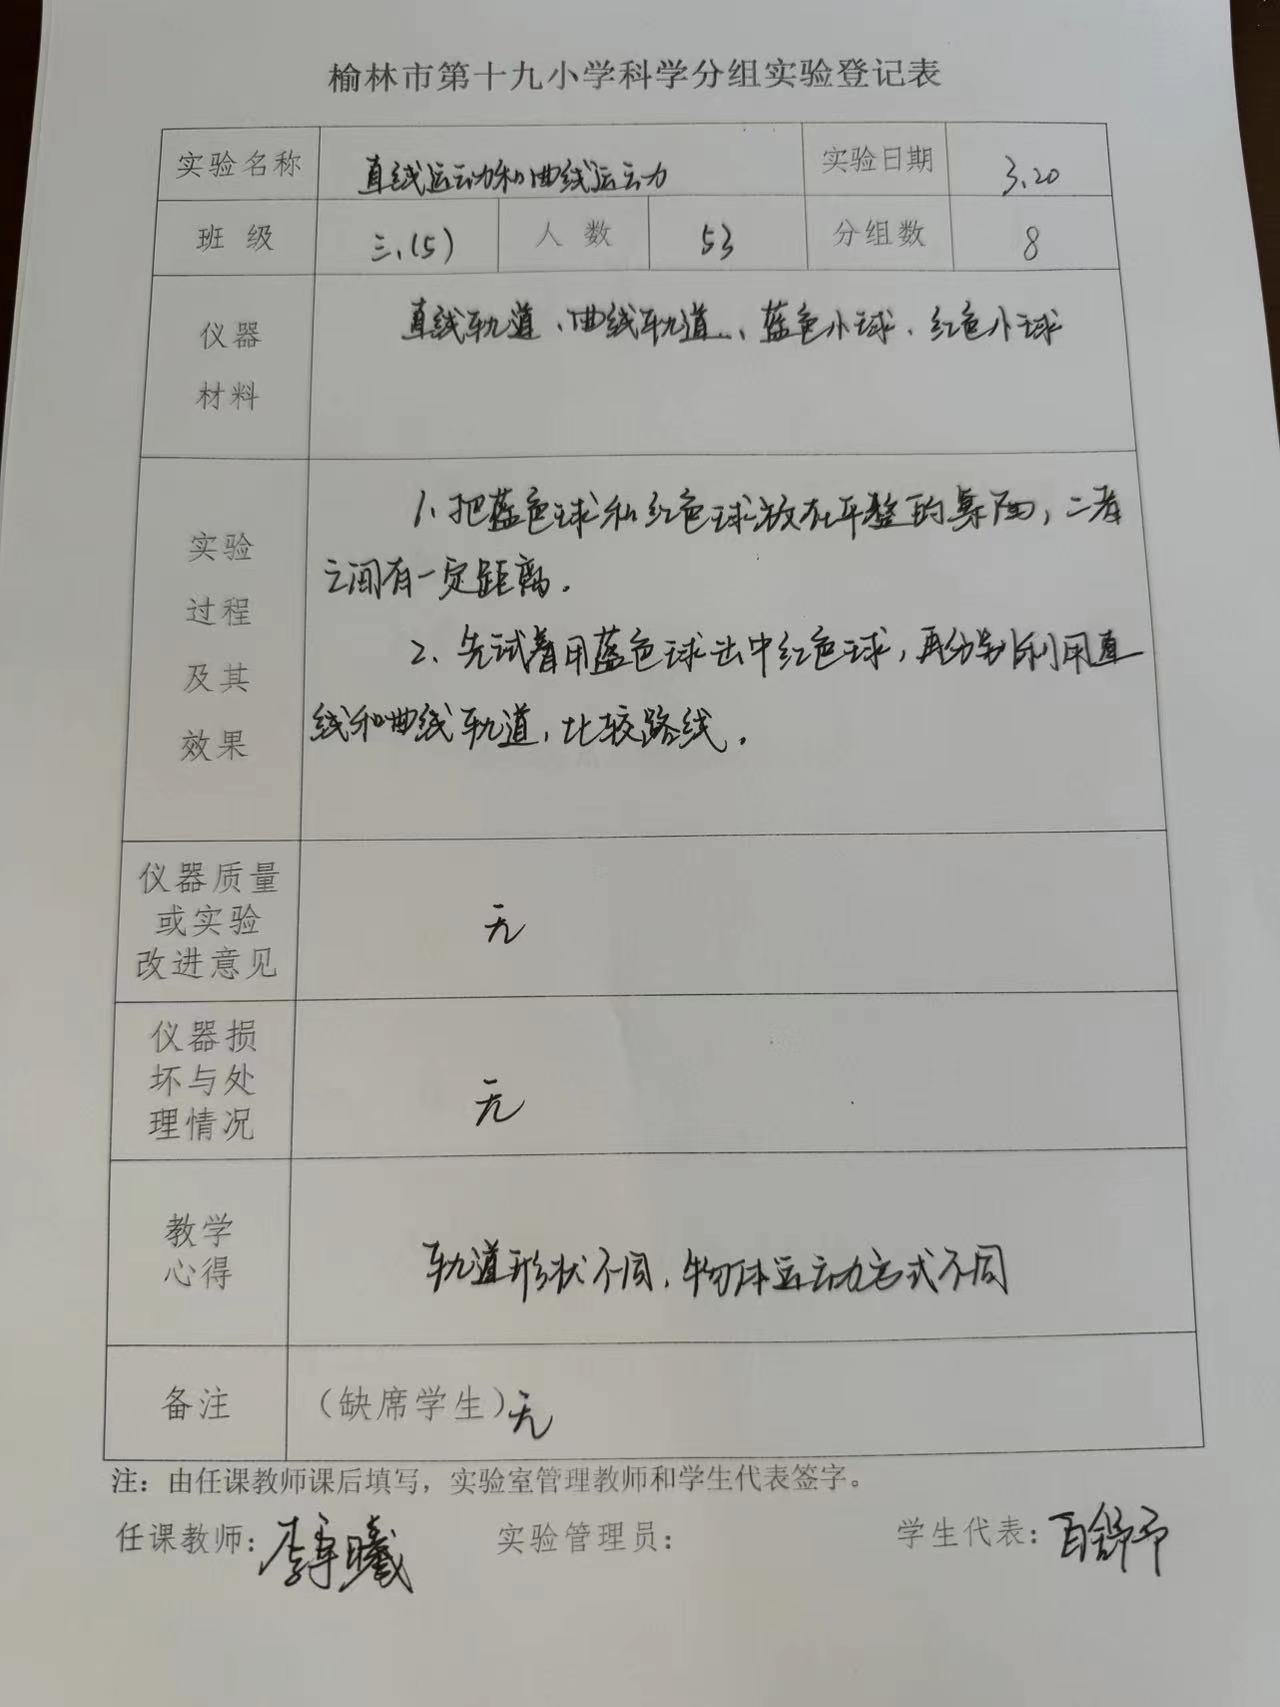 榆林市第十九小学科学分组实验登记表
实验名称 直线运动和曲线运动 实验日期 3.20
班级 三.(5) 人数 53 分组数 8
仪器
材料
直线轨道、曲线轨道、蓝色小球、红色小球
实验
过程
及其
效果
1、把蓝色球和红色球放在平整的桌面，二者
之间有一定距离。
2、先试着用蓝色球击中红色球，再分别利用直
线和曲线轨道，比较路线。
仪器质量
或实验
改进意见
无
仪器损
坏与处
理情况
无
教学
心得
轨道形状不同，物体运动方式不同
备注 （缺席学生）无
注：由任课教师课后填写，实验室管理教师和学生代表签字。
任课教师： 实验管理员： 学生代表：